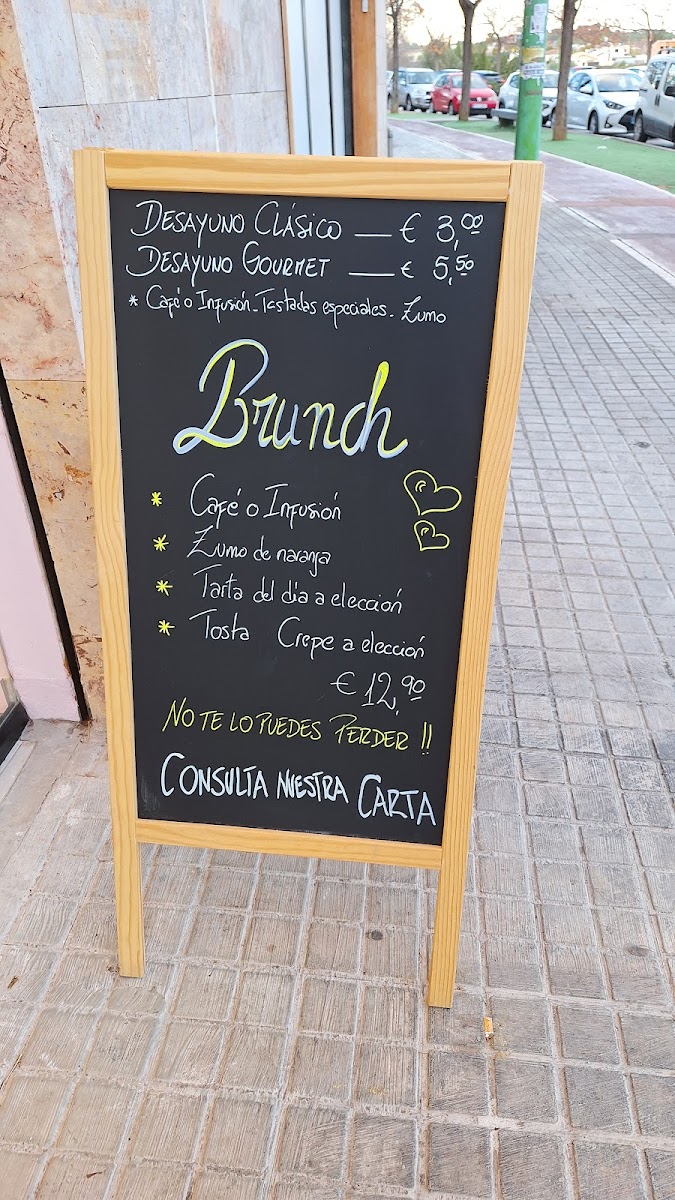 DESAYUNO CLÁSICO — € 3,00
DESAYUNO GOURMET — € 5,50
* Café o Infusión - Tostadas especiales - Zumo
Brunch
* Café o Infusión
* Zumo de naranja
* Tarta del dia a elección
* Tosta Crepe a elección
€ 12,90
NO TE LO PUEDES PERDER !!
CONSULTA NUESTRA CARTA